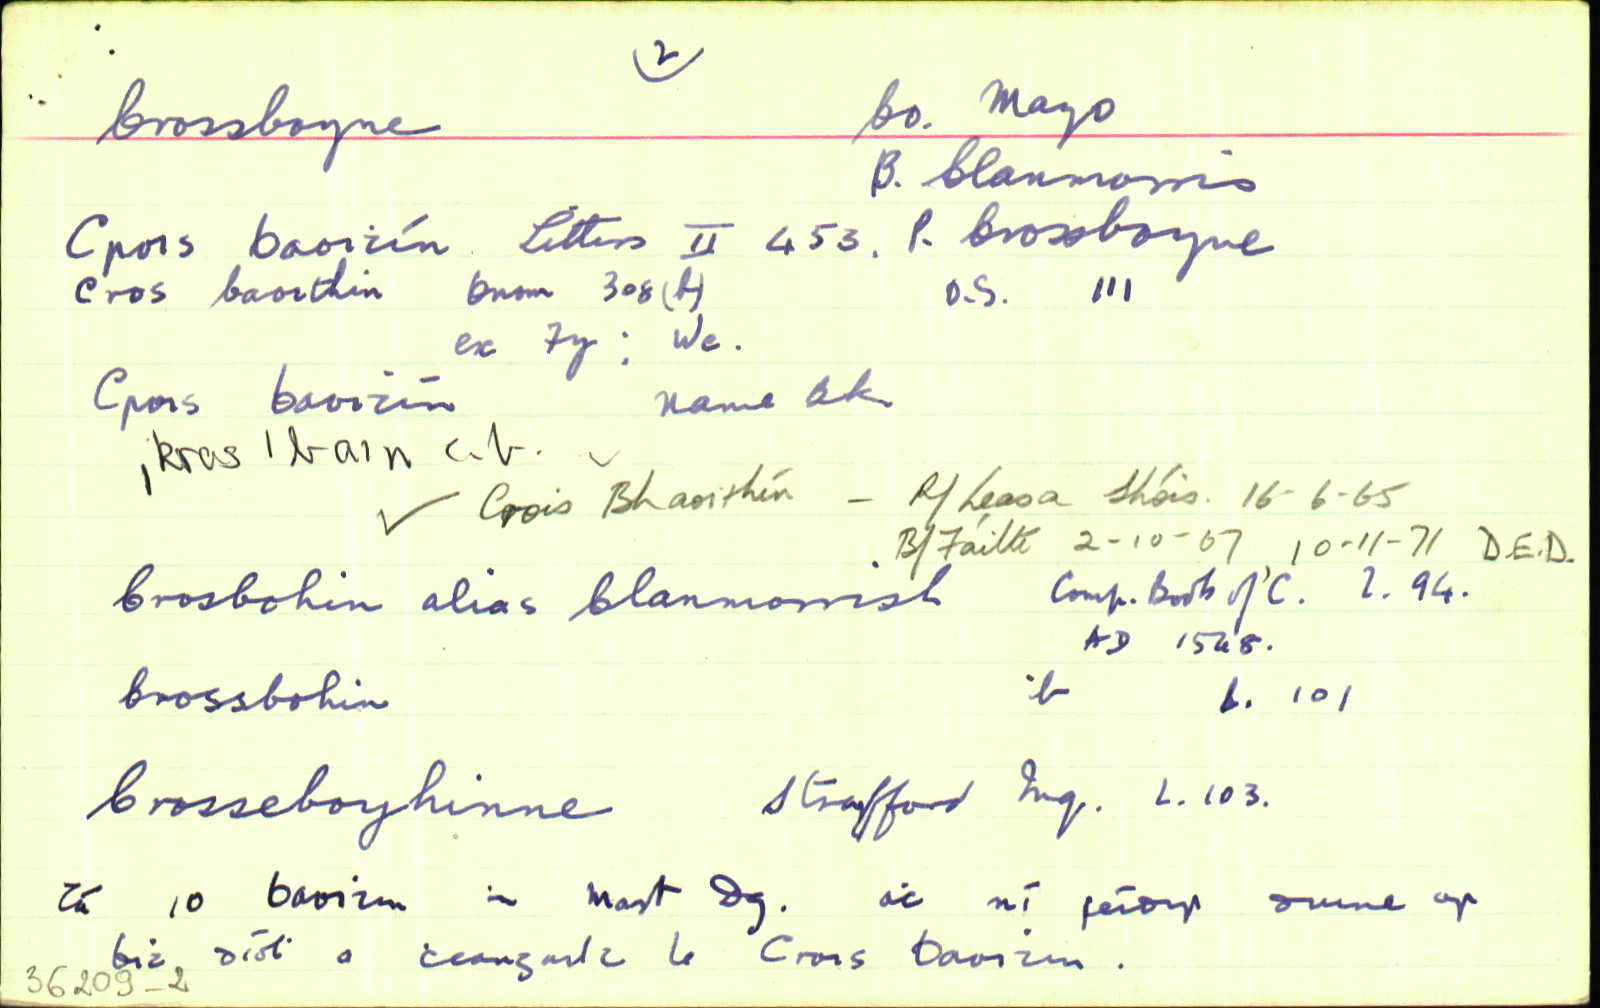 2
Crossboyne Co. Mayo
B. Clanmorris
Crois Baoiṫín Letters II 453. P. Crossboyne
Cros baoithin Onom 308(b) O.S. 111
ex Fy; We.
Crois Baoiṫín name Bk.
ˌkrɑs ˈbɑin c.b.
✓ Crois Bhaoithín – R/Leasa Shóis. 16-6-65
B/Fáilte 2-10-67, 10-11-71 D.E.D.
Crosbohin alias Clanmorrish Comp. Book of C. l. 94.
AD 1548.
Crossbohin ib L. 101
Crosseboyhinne Strafford Inq. L. 103.
Tá 10 Baoiṫín in Mart Dg. aċ ní féidir duine ar
biṫ díoḃ a ċeangailt le Crois Baoiṫín.
36209-2